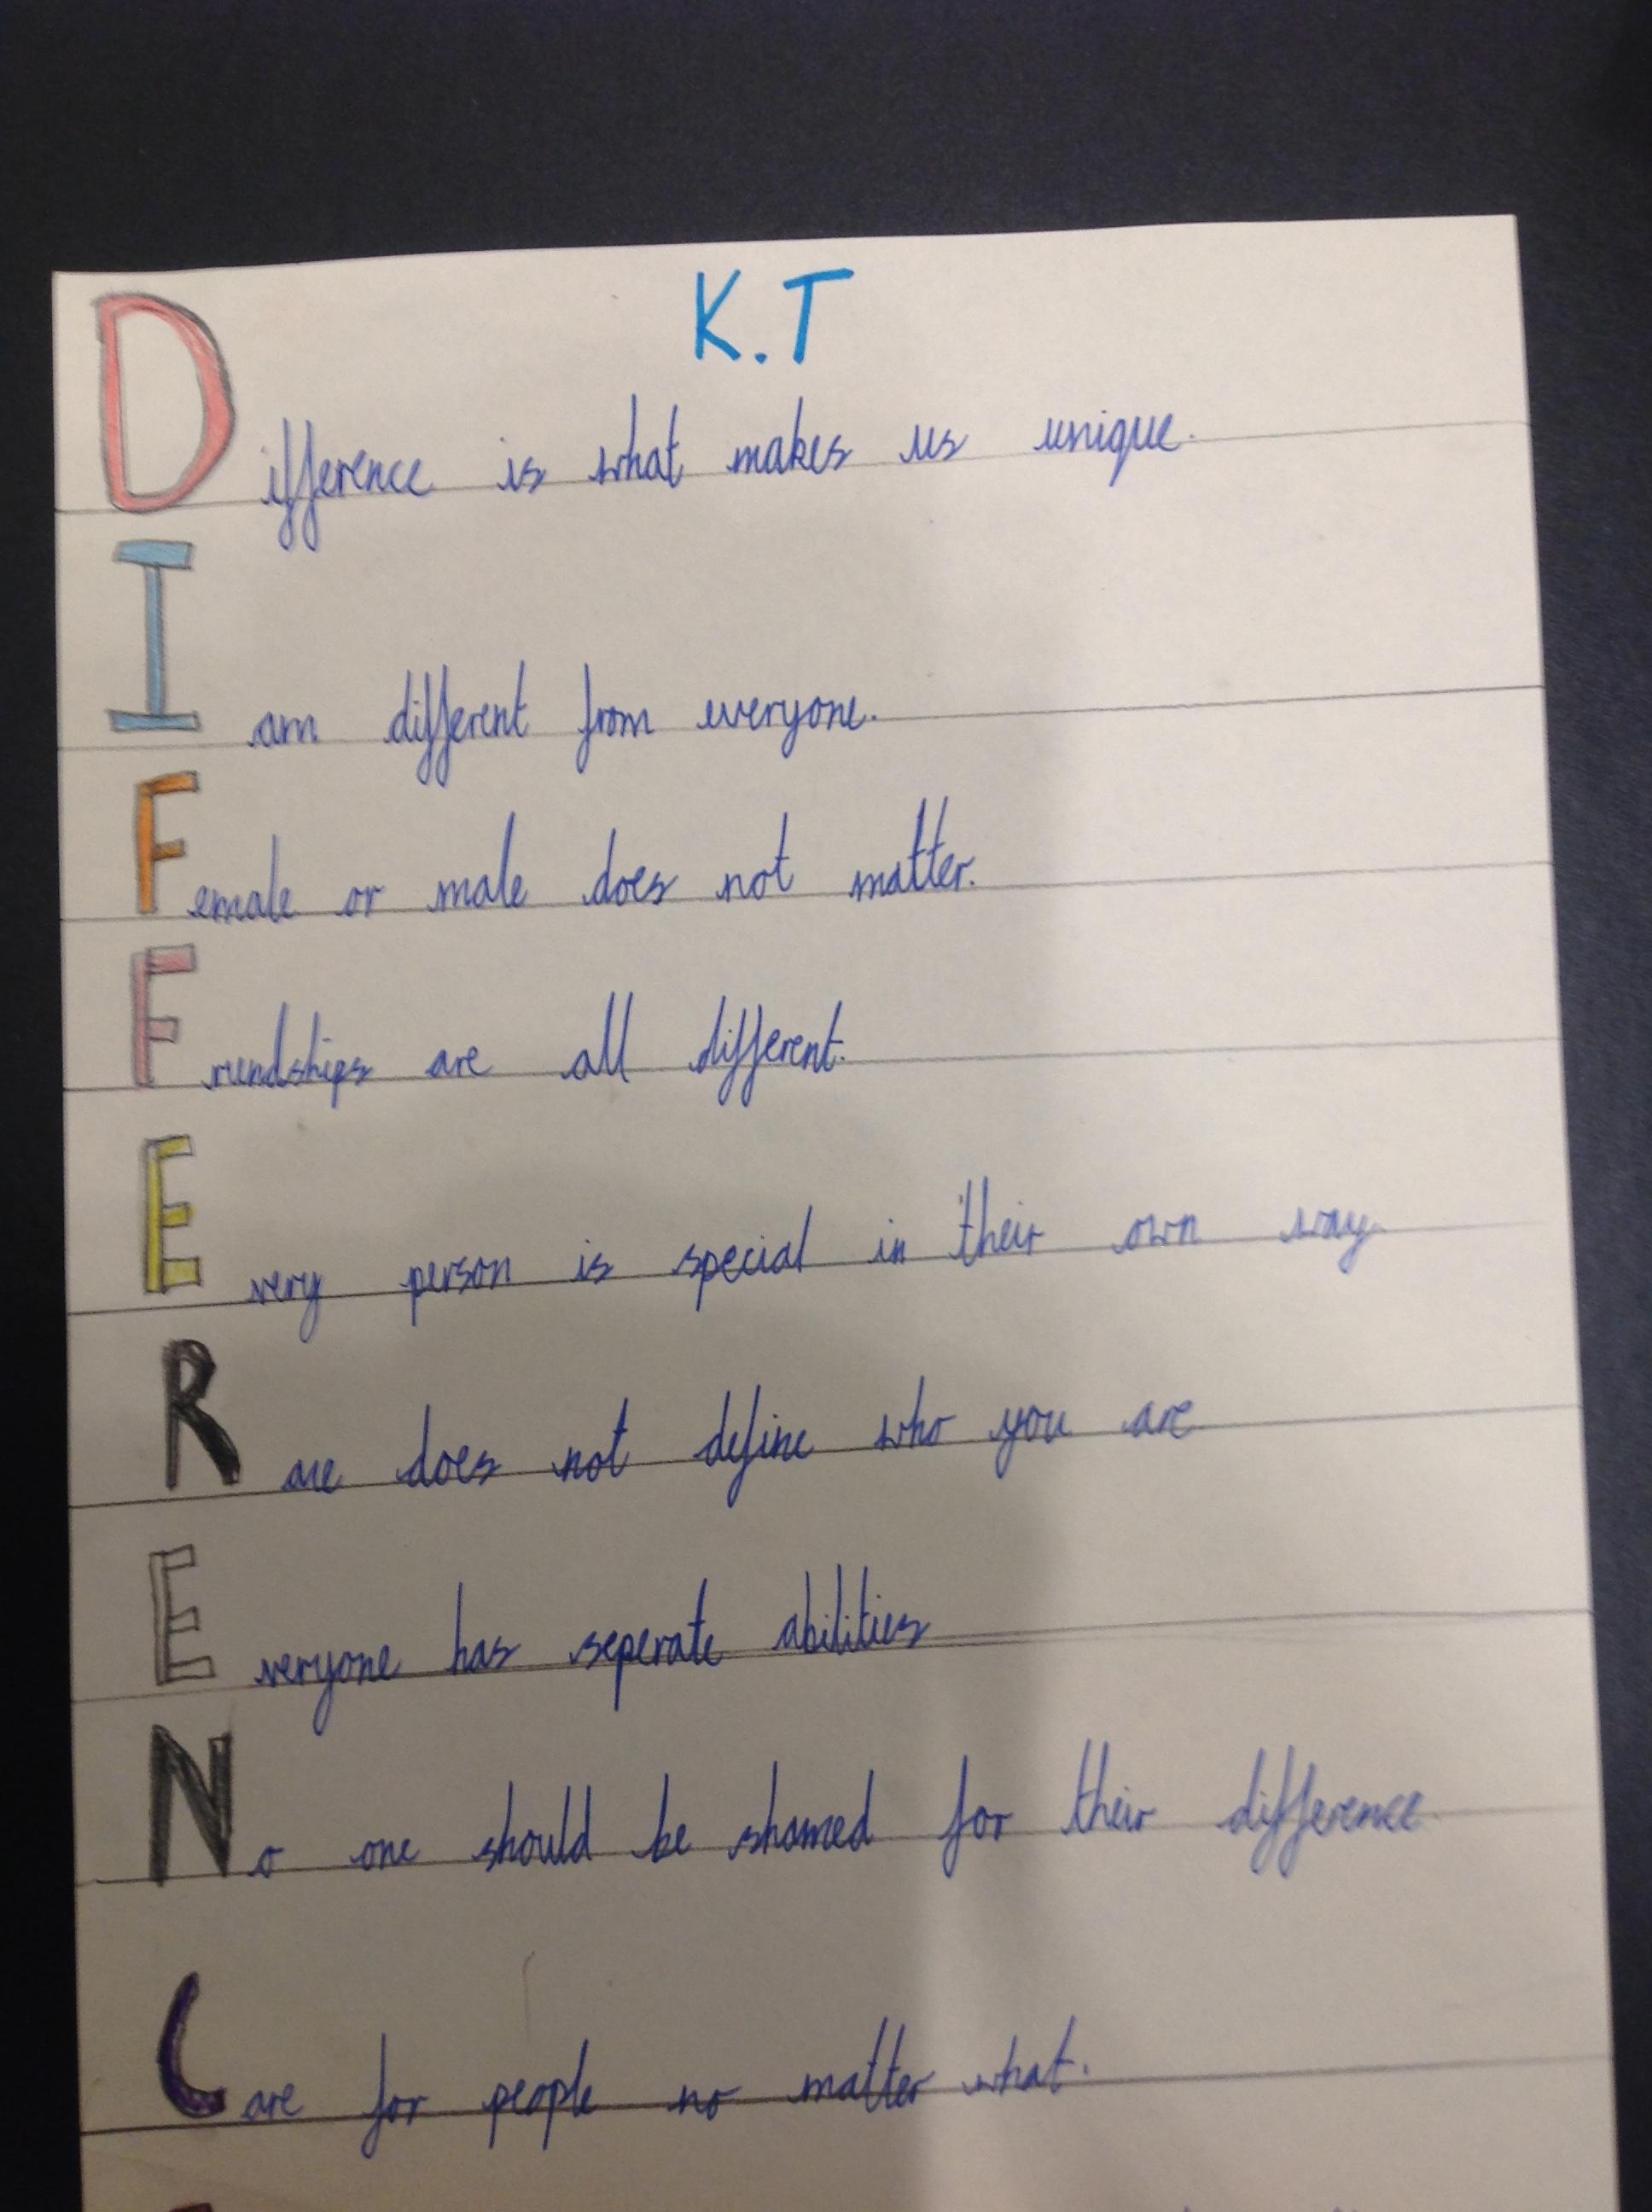 K.T
Difference is what makes us unique.
I am different from everyone.
Female or male does not matter.
Friendships are all different.
Every person is special in their own way.
Race does not define who you are
Everyone has seperate abilities
No one should be shamed for their difference
Care for people no matter what.